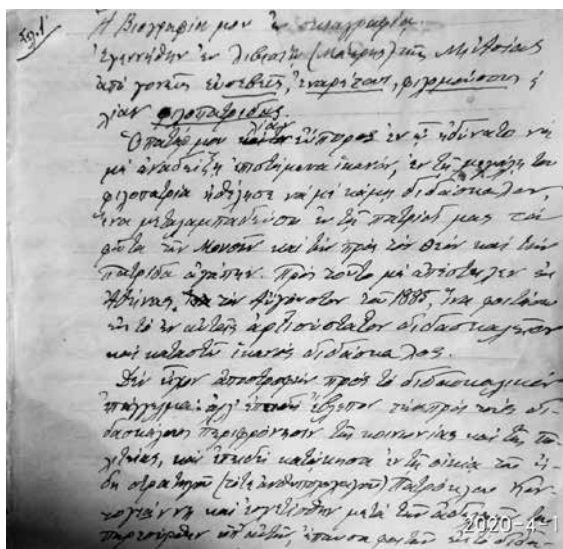 Σελ. 1
Ἡ Βιογραφία μου ἐν σκιαγραφίᾳ.
Ἐγεννήθην ἐν Λιβισίῳ (Μάκρης) τῆς Μ. Ἀσίας
ἀπὸ γονεῖς εὐσεβεῖς, ἐναρέτους, φιλομούσους
λίαν φιλοπάτριδας.
Ὁ πατήρ μου λίαν εὔπορος ἐν ᾧ ἠδύνατο νὰ
μὲ ἀναδείξῃ ἐπιστήμονα ἱκανόν, ἐν τῇ μεγάλῃ του
φιλοπατρίᾳ ἠθέλησε νὰ με κάμῃ διδάσκαλον,
ἵνα μεταλαμπαδεύσω ἐν τῇ πατρίδι μας τὰ
φῶτα τῶν Μουσῶν καὶ τὴν πρὸς τὸν Θεὸν καὶ τὴν
πατρίδα ἀγάπην. Πρὸς τοῦτο μὲ ἀπέστειλεν εἰς
Ἀθήνας τὸν Αὔγουστον τοῦ 1885 ἵνα φοιτήσω
εἰς τὸ ἐν αὐταῖς ἀρτισύστατον διδασκαλεῖον
καὶ καταστῶ ἱκανὸς διδάσκαλος.
Δὲν εἶχον ἀποστροφὴν πρὸς τὸ διδασκαλικὸν
ἐπάγγελμα· ἀλλ' ἐπειδὴ ἔβλεπον τὴν πρὸς τοὺς δι-
δασκάλους περιφρόνησιν τῆς κοινωνίας καὶ τῆς πο-
λιτείας, καὶ ἐπειδὴ κατῴκησα ἐν τῇ οἰκίᾳ τοῦ
στρατηγοῦ (τότε ἀνθυπολοχαγοῦ) Πατρόκλου Κον-
τογιάννη καὶ μετὰ τῶν
παρεσύρθην ὑπ' αὐτῶν, ἔπαυσα φοιτῶν εἰς τὸ διδα-
2020-4-1